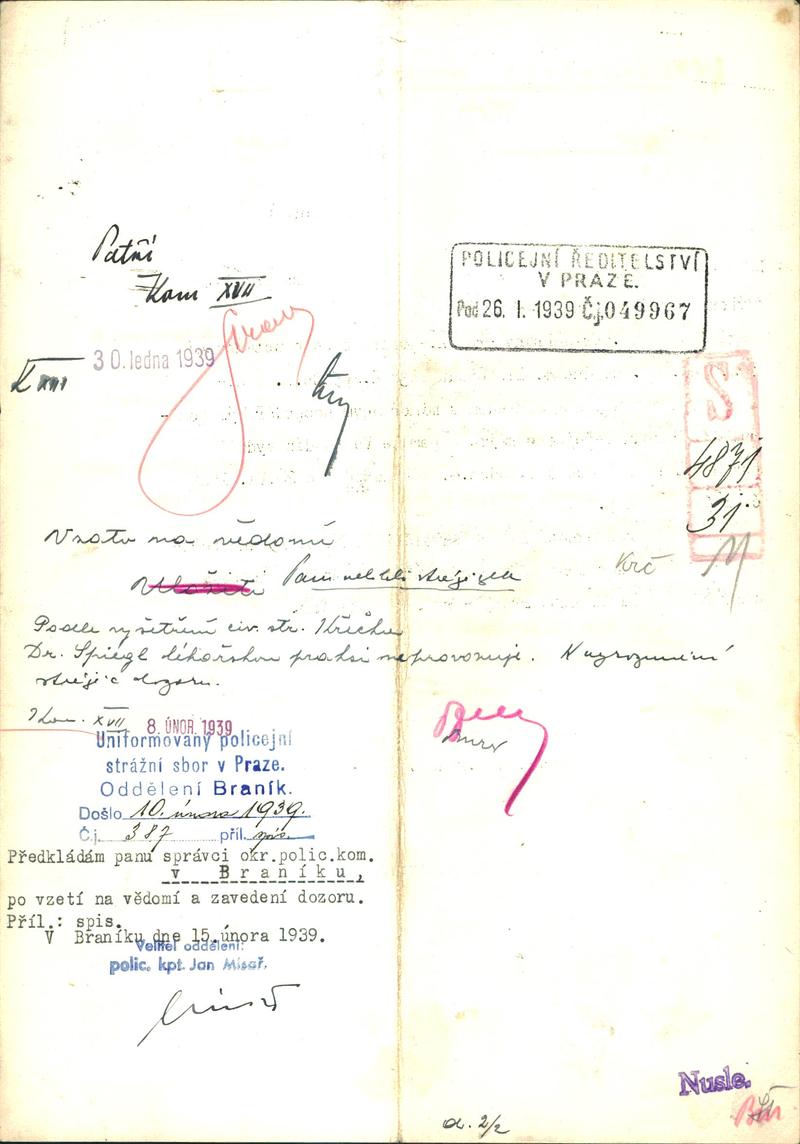 Patří
Kom XVII
POLICEJNÍ ŘEDITELSTVÍ
V PRAZE.
Pod 26. I. 1939 Čj. 049967
30. ledna 1939
K XVII
S
4871
31
Krč
Vzato na vědomí
Uložiti Panu veliteli stráže
Podle vyšetření civ. str.
Dr. Spiegl lékařskou praksi neprovozuje. K vyrozumění
stráže dozoru.
Kom. XVII 8. ÚNOR. 1939
Uniformovaný policejní
strážní sbor v Praze.
Oddělení Braník.
Došlo 10. února 1939.
Č.j. 387 příl. spis.
Předkládám panu správci okr.polic.kom.
v Braníku,
po vzetí na vědomí a zavedení dozoru.
Příl.: spis.
V Braníku dne 15.února 1939.
Velitel oddělení:
polic. kpt. Jan Misař.
Nusle.
a. 2/2